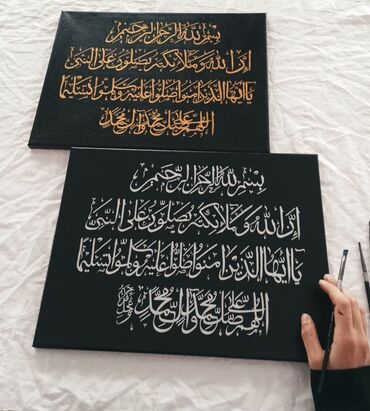 بسم الله الرحمن الرحيم
إن الله وملائكته يصلون على النبي
يا أيها الذين آمنوا صلوا عليه وسلموا تسليما
اللهم صل على محمد وآل محمد
بسم الله الرحمن الرحيم
إن الله وملائكته يصلون على النبي
يا أيها الذين آمنوا صلوا عليه وسلموا تسليما
اللهم صل على محمد وآل محمد